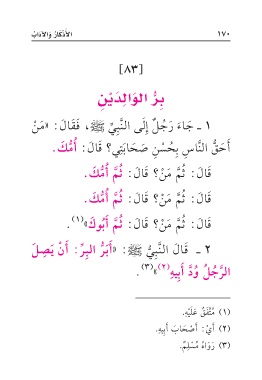 ١٧٠ الأَذْكَارُ وَالآدَابُ
[٨٣]
بِرُّ الوَالِدَيْنِ
١ ـ جَاءَ رَجُلٌ إِلَى النَّبِيِّ ﷺ، فَقَالَ: «مَنْ
أَحَقُّ النَّاسِ بِحُسْنِ صَحَابَتِي؟ قَالَ: أُمُّكَ.
قَالَ: ثُمَّ مَنْ؟ قَالَ: ثُمَّ أُمُّكَ.
قَالَ: ثُمَّ مَنْ؟ قَالَ: ثُمَّ أُمُّكَ.
قَالَ: ثُمَّ مَنْ؟ قَالَ: ثُمَّ أَبُوكَ»(١).
٢ ـ قَالَ النَّبِيُّ ﷺ: «أَبَرُّ البِرِّ: أَنْ يَصِلَ
الرَّجُلُ وُدَّ أَبِيهِ(٢)»(٣).
(١) مُتَّفَقٌ عَلَيْهِ.
(٢) أَيْ: أَصْحَابَ أَبِيهِ.
(٣) رَوَاهُ مُسْلِمٌ.